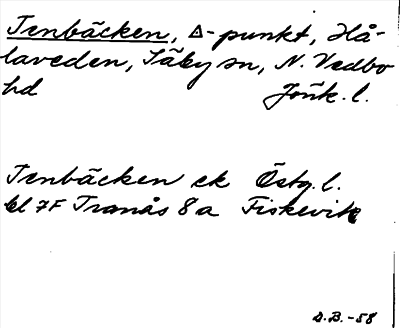 Tenbäcken, Δ-punkt, Hå-
laveden, Säby sn, N. Vedbo
hd Jönk. l.
Tenbäcken ek Östg. l.
bl 7F Tranås 8a Fiskevik
D.B. -58